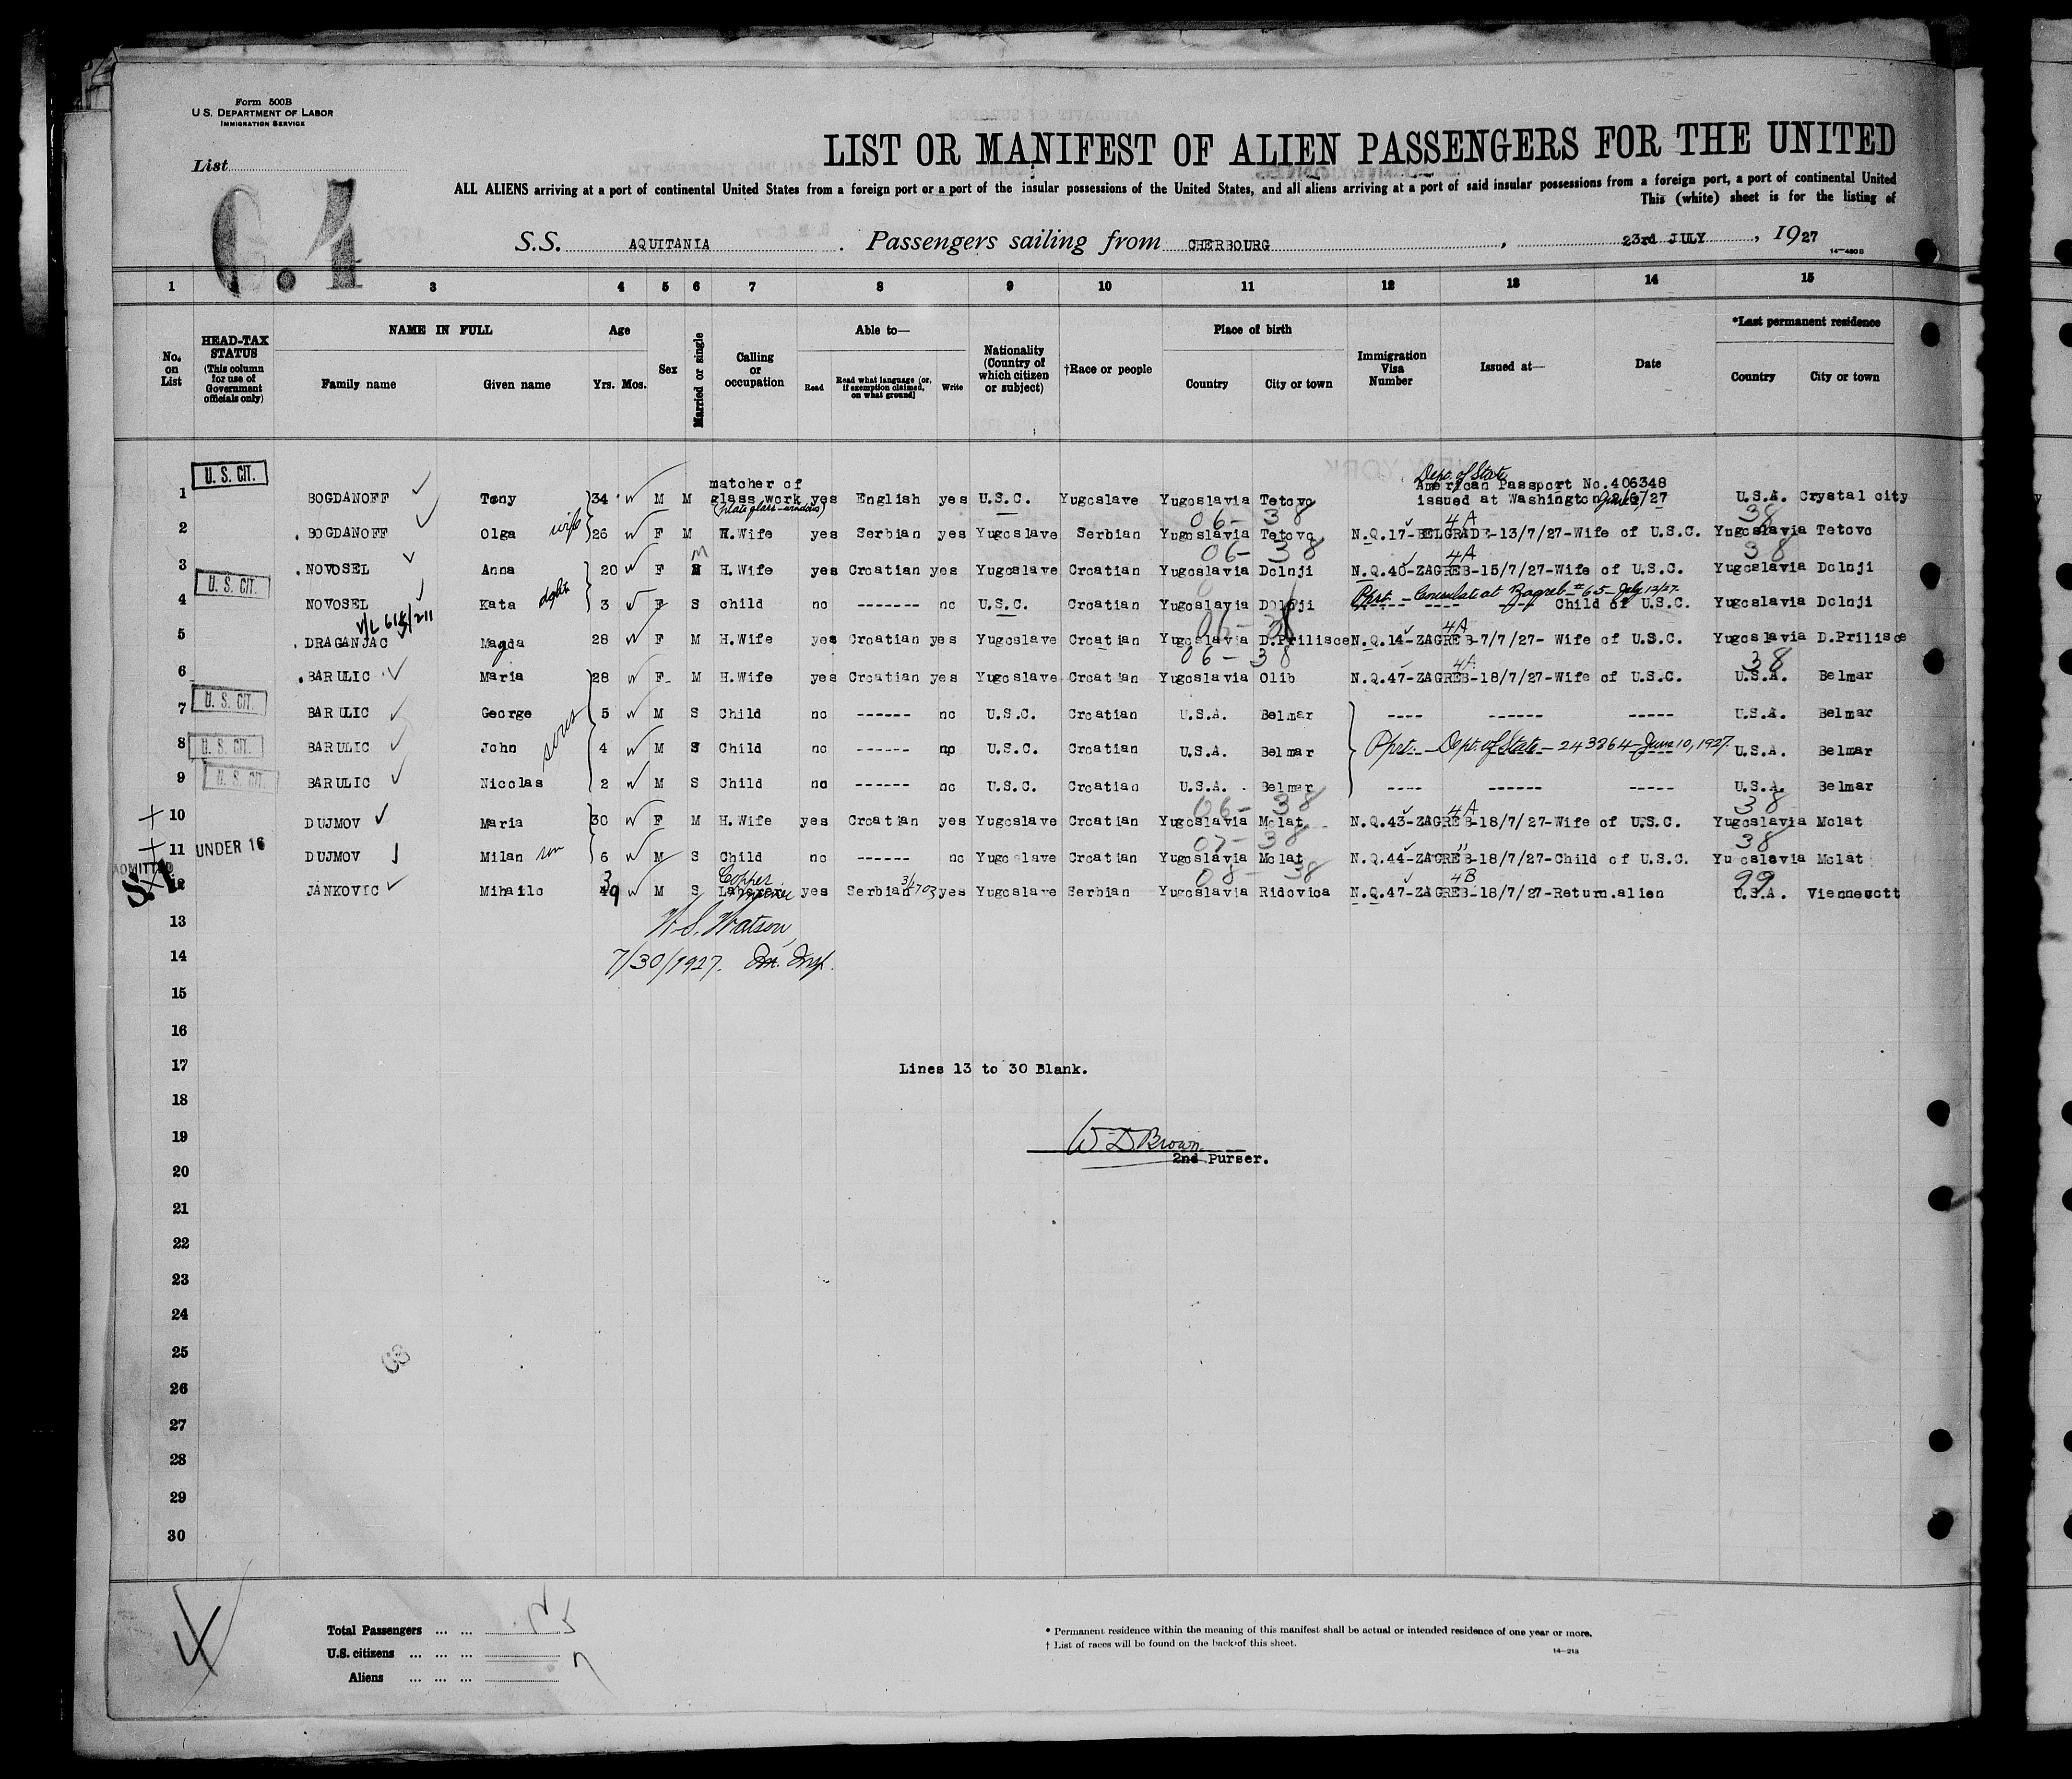 Form 500B
U.S. DEPARTMENT OF LABOR
IMMIGRATION SERVICE
List
C.4
LIST OR MANIFEST OF ALIEN PASSENGERS FOR THE UNITED
ALL ALIENS arriving at a port of continental United States from a foreign port or a port of the insular possessions of the United States, and all aliens arriving at a port of said insular possessions from a foreign port, a port of continental United
This (white) sheet is for the listing of
S.S. AQUITANIA. Passengers sailing from CHERBOURG, 23rd JULY, 1927
14-480 B
1 3 4 5 6 7 8 9 10 11 12 13 14 15
No. on List
HEAD-TAX STATUS (This column for use of Government officials only)
NAME IN FULL Family name Given name
Age Yrs. Mos.
Sex
Married or single
Calling or occupation
Able to— Read Read what language (or, if exemption claimed, on what ground) Write
Nationality (Country of which citizen or subject)
†Race or people
Place of birth Country City or town
Immigration Visa Number
Issued at—
Date
*Last permanent residence Country City or town
Dept. of State
1 U. S. CIT. BOGDANOFF Tony 34 M M matcher of glass work (plate glass-windows) yes English yes U.S.C. Yugoslave Yugoslavia Tetovo American Passport No.406348 issued at Washington /27 U.S.A. Crystal city
06- 38 4A 38
2 BOGDANOFF Olga wife 26 F M H.Wife yes Serbian yes Yugoslave Serbian Yugoslavia Tetovo N.Q.17-BELGRADE-13/7/27-Wife of U.S.C. Yugoslavia Tetovo
M 06- 38 4A 38
3 NOVOSEL Anna 20 F H.Wife yes Croatian yes Yugoslave Croatian Yugoslavia Dolnji N.Q.40-ZAGREB-15/7/27-Wife of U.S.C. Yugoslavia Dolnji
Pprt. - Consulate at Zagreb #65- July 12/27.
4 U. S. CIT. NOVOSEL Kata dghtr 3 F S child no ------- no U.S.C. Croatian Yugoslavia Dolnji Child of U.S.C. Yugoslavia Dolnji
V/L 615/211 06- 38 4A
5 DRAGANJAC Magda 28 F M H.Wife yes Croatian yes Yugoslave Croatian Yugoslavia D.Prilisce N.Q.14-ZAGREB-7/7/27- Wife of U.S.C. Yugoslavia D.Prilisce
06- 38 4A 38
6 BARULIC Maria 28 F M H.Wife yes Croatian yes Yugoslave Croatian Yugoslavia Olib N.Q.47-ZAGREB-18/7/27-Wife of U.S.C. U.S.A. Belmar
7 U. S. CIT. BARULIC George 5 M S Child no ------ no U.S.C. Croatian U.S.A. Belmar ---- ------ ----- U.S.A. Belmar
8 U. S. CIT. BARULIC John sons 4 M S Child no ------ no U.S.C. Croatian U.S.A. Belmar Pprt. - Dept. of State - 243864 - June 10, 1927. U.S.A. Belmar
9 U. S. CIT. BARULIC Nicolas 2 M S Child no ------ no U.S.C. Croatian U.S.A. Belmar ---- ------ ----- U.S.A. Belmar
06- 38 4A 38
10 DUJMOV Maria 30 F M H.Wife yes Croatian yes Yugoslave Croatian Yugoslavia Molat N.Q.43-ZAGREB-18/7/27-Wife of U.S.C. Yugoslavia Molat
07- 38 " 38
11 UNDER 16 DUJMOV Milan son 6 M S Child no ------ no Yugoslave Croatian Yugoslavia Molat N.Q.44-ZAGREB-18/7/27-Child of U.S.C. Yugoslavia Molat
ADMITTED
Copper 08- 38 4B 99
12 JANKOVIC Mihailo 39 M S yes Serbian yes Yugoslave Serbian Yugoslavia Ridovica N.Q.47-ZAGREB-18/7/27-Return.alien U.S.A. Viennecott
13 W. S. Watson,
14 7/30/1927. Im. Insp.
15
16
17 Lines 13 to 30 Blank.
18
19 W. D Brown.
2nd Purser.
20
21
22
23
24
25
26
27
28
29
30
Total Passengers
U.S. citizens
Aliens
* Permanent residence within the meaning of this manifest shall be actual or intended residence of one year or more.
† List of races will be found on the back of this sheet.
14-213